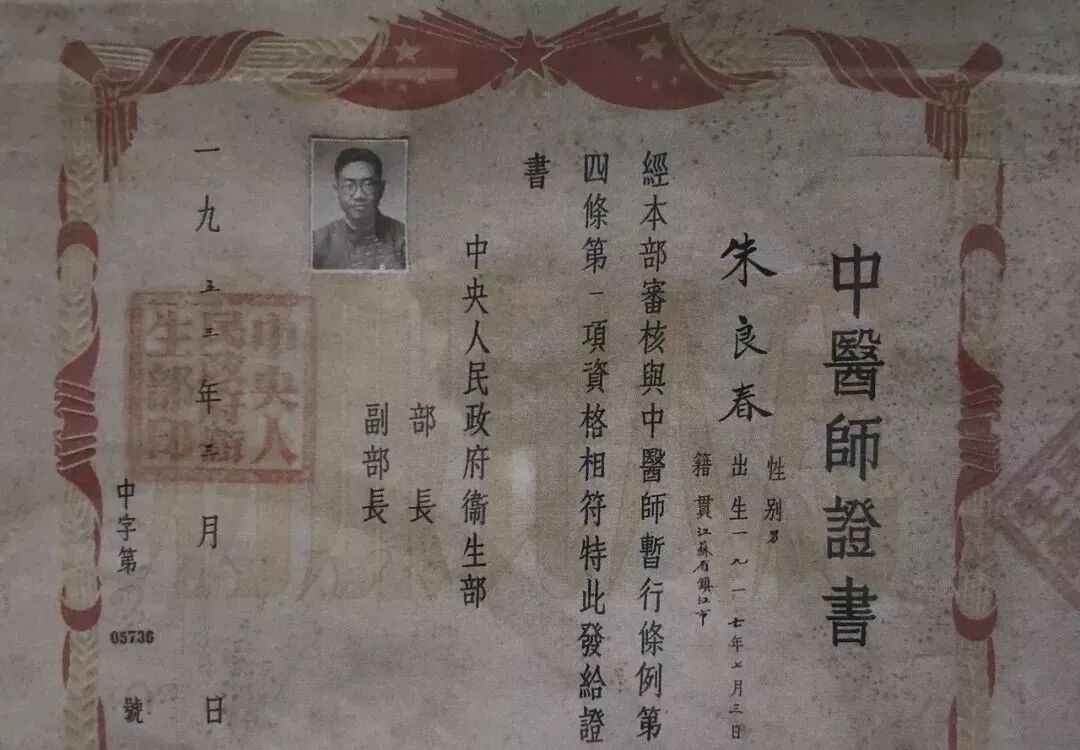 中醫師證書
朱良春
性別男
出生一九一七年七月三日
籍貫江蘇省鎮江市
經本部審核與中醫師暫行條例第
四條第一項資格相符特此發給證
書
中央人民政府衞生部
部長
副部長
一九五三年三月 日
中央人
民政府衛
生部印
中字第
05736
號